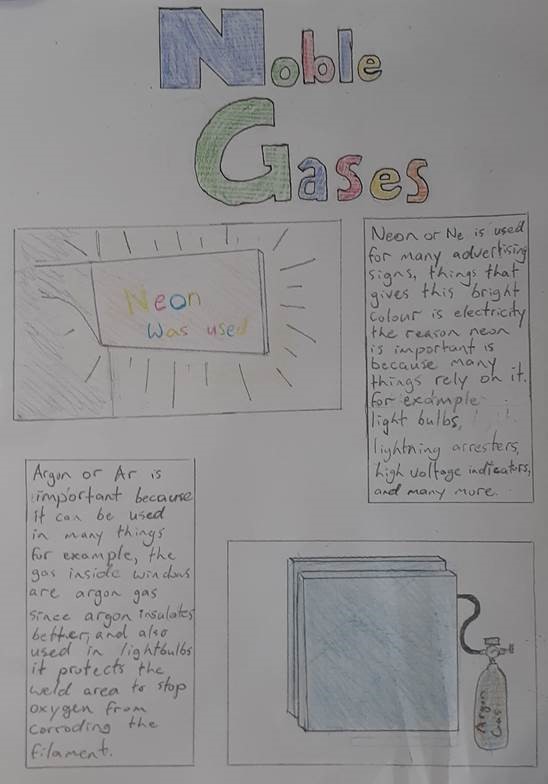 Noble
Gases
Neon
was used
Neon or Ne is used
for many advertising
signs, things that
gives this bright
colour is electricity
the reason neon
is important is
because many
things rely on it.
for example
light bulbs,
lightning arresters,
high voltage indicators,
and many more.
Argon or Ar is
important because
it can be used
in many things
for example, the
gas inside windows
are argon gas
since argon insulates
better, and also
used in lightbulbs
it protects the
weld area to stop
oxygen from
corroding the
filament.
Argon
Gas